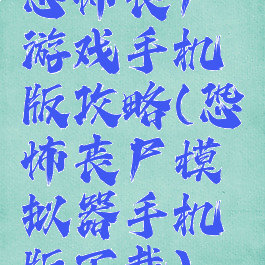 恐怖丧尸
游戏手机
版攻略(恐
怖丧尸模
拟器手机
版下载)